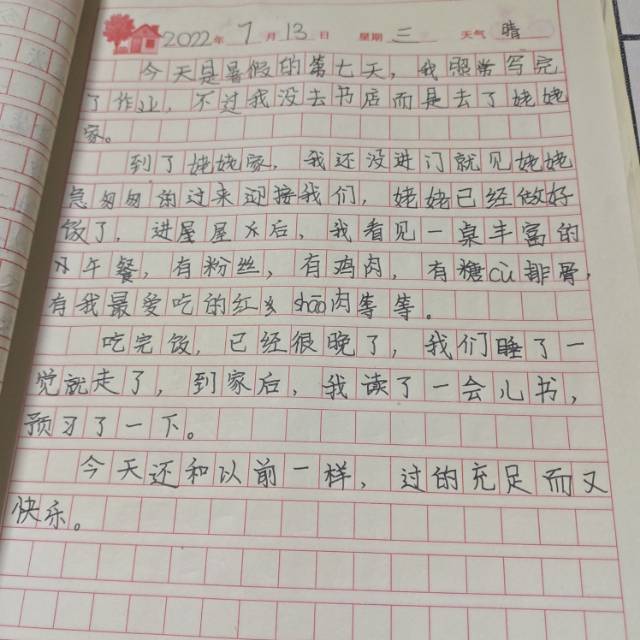 2022年 7月 13日 星期 三 天气 晴
今天是暑假的第七天，我照常写完
了作业，不过我没去书店而是去了姥姥
家。
到了姥姥家，我还没进门就见姥姥
急匆匆的过来迎接我们，姥姥已经做好
饭了，进屋后，我看见一桌丰富的
午餐，有粉丝，有鸡肉，有糖cù排骨，
有我最爱吃的红shāo肉等等。
吃完饭，已经很晚了，我们睡了一
觉就走了，到家后，我读了一会儿书，
预习了一下。
今天还和以前一样，过的充足而又
快乐。